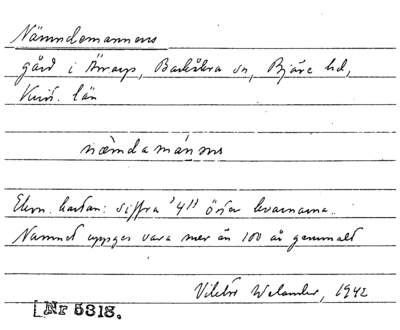 Nämndemannens
gård i Ärrarp, Barkåkra sn, Bjäre hd,
Krist. län
næmdamánns
Ekon. kartan: siffra "4" öster kvarnarna.
Namnet uppges vara mer än 100 år gammalt
Viktor Welander, 1942
Nr 5318.